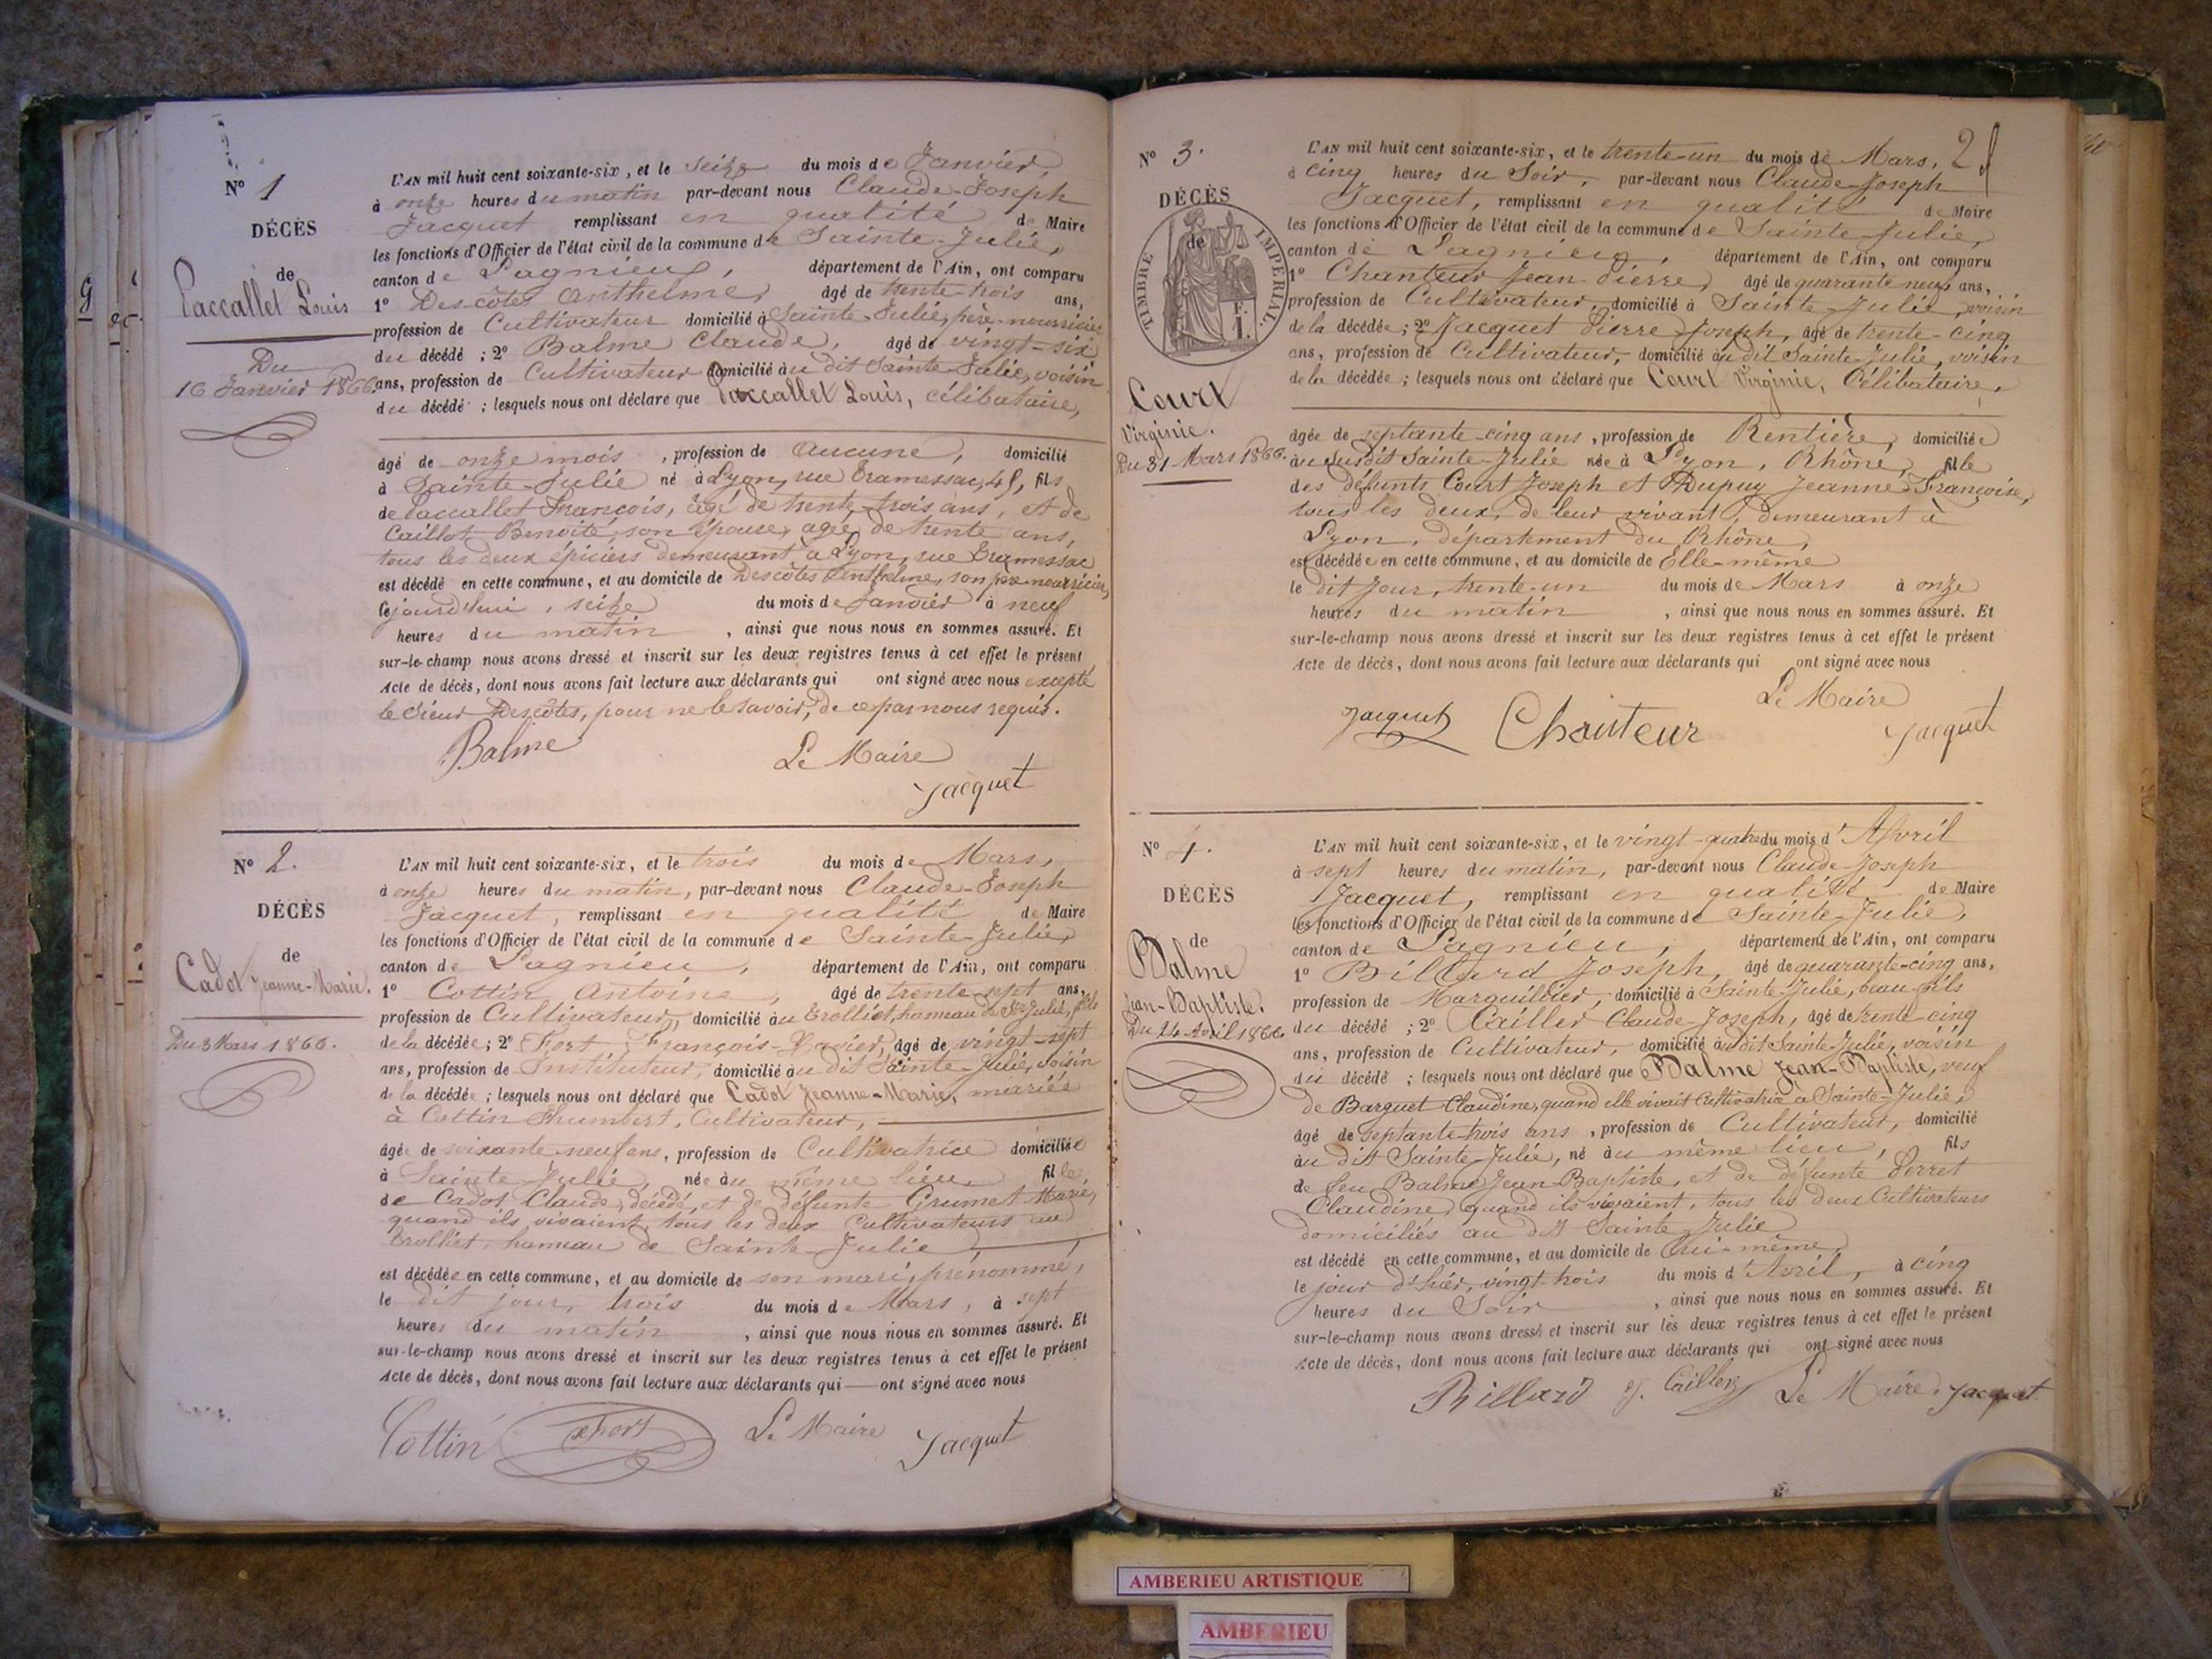 N° 1
DÉCÈS
de
Paccallet Louis
Du
16 Janvier 1866.
L'AN mil huit cent soixante-six, et le seize du mois de Janvier,
à onze heures du matin par-devant nous Claude-Joseph
Jacquet remplissant en qualité de Maire
les fonctions d'Officier de l'état civil de la commune de Sainte-Julie,
canton de Lagnieu, département de l'Ain, ont comparu
1° Descôtes Anthelme, âgé de trente-trois ans,
profession de Cultivateur domicilié à Sainte-Julie, père-nourricier
du décédé ; 2° Balme Claude, âgé de vingt-six
ans, profession de Cultivateur domicilié au dit Sainte-Julie, voisin
du décédé ; lesquels nous ont déclaré que Paccallet Louis, célibataire,
âgé de onze mois, profession de Aucune, domicilié
à Sainte-Julie né à Lyon, rue Tramessac, 45, fils
de Paccallet François, âgé de trente-trois ans, et de
Caillot Benoite, son épouse, agée de trente ans,
tous les deux épiciers demeurant à Lyon, rue Tramessac
est décédé en cette commune, et au domicile de Descôtes Anthelme, son père nourricier,
cejourd'hui, seize du mois de Janvier à neuf
heures du matin, ainsi que nous nous en sommes assuré. Et
sur-le-champ nous avons dressé et inscrit sur les deux registres tenus à cet effet le présent
Acte de décès, dont nous avons fait lecture aux déclarants qui ont signé avec nous excepté
le Sieur Descôtes, pour ne le savoir, de ce par nous requis.
Balme Le Maire
Jacquet
N° 2.
DÉCÈS
de
Cadot Jeanne-Marie.
Du 3 Mars 1866.
L'AN mil huit cent soixante-six, et le trois du mois de Mars,
à onze heures du matin, par-devant nous Claude-Joseph
Jacquet, remplissant en qualité de Maire
les fonctions d'Officier de l'état civil de la commune de Sainte-Julie,
canton de Lagnieu, département de l'Ain, ont comparu
1° Cottin Antoine, âgé de trente-sept ans,
profession de Cultivateur, domicilié au Trolliet, hameau de Ste Julie, fils
de la décédée ; 2° Fort François-Xavier, âgé de vingt-sept
ans, profession de Instituteur, domicilié au dit Sainte-Julie, voisin
de la décédée ; lesquels nous ont déclaré que Cadot Jeanne-Marie, mariée
à Cottin Humbert, Cultivateur,
âgée de soixante-neuf ans, profession de Cultivatrice domiciliée
à Sainte Julie, née au même lieu, fille
de Cadot Claude, décédé, et de défunte Grumet Marie,
quand ils vivaient, tous les deux Cultivateurs au
Trolliet, hameau de Sainte-Julie,
est décédée en cette commune, et au domicile de son mari, prénommé,
le dit jour, trois du mois de Mars, à sept
heures du matin, ainsi que nous nous en sommes assuré. Et
sur-le-champ nous avons dressé et inscrit sur les deux registres tenus à cet effet le présent
Acte de décès, dont nous avons fait lecture aux déclarants qui ont signé avec nous
Cottin Fort Le Maire Jacquet
2
N° 3.
DÉCÈS
de
TIMBRE IMPÉRIAL.
F.
1.
Court
Virginie.
Du 31 Mars 1866.
L'AN mil huit cent soixante-six, et le trente-un du mois de Mars,
à cinq heures du Soir, par-devant nous Claude-Joseph
Jacquet, remplissant en qualité de Maire
les fonctions d'Officier de l'état civil de la commune de Sainte Julie,
canton de Lagnieu, département de l'Ain, ont comparu
1° Chanteur Jean-Pierre, âgé de quarante neuf ans,
profession de Cultivateur, domicilié à Sainte-Julie, voisin
de la décédée ; 2° Jacquet Pierre-Joseph, âgé de trente-cinq
ans, profession de Cultivateur, domicilié au dit Sainte-Julie, voisin
de la décédée ; lesquels nous ont déclaré que Court Virginie, Célibataire,
âgée de septante-cinq ans, profession de Rentière, domiciliée
au susdit Sainte-Julie née à Lyon, Rhône, fille
des défunts Court Joseph et Dupuy Jeanne Françoise,
tous les deux, de leur vivant, demeurant à
Lyon, département du Rhône,
est décédée en cette commune, et au domicile de Elle-même
le dit Jour, trente-un du mois de Mars à onze
heures du matin, ainsi que nous nous en sommes assuré. Et
sur-le-champ nous avons dressé et inscrit sur les deux registres tenus à cet effet le présent
Acte de décès, dont nous avons fait lecture aux déclarants qui ont signé avec nous
Le Maire
Jacquet Chanteur Jacquet
N° 4.
DÉCÈS
de
Balme
Jean-Baptiste.
Du 24 Avril 1866.
L'AN mil huit cent soixante-six, et le vingt-quatre du mois d'Avril
à sept heures du matin, par-devant nous Claude-Joseph
Jacquet, remplissant en qualité de Maire
les fonctions d'Officier de l'état civil de la commune de Sainte-Julie,
canton de Lagnieu, département de l'Ain, ont comparu
1° Billard Joseph, âgé de quarante-cinq ans,
profession de Marguillier, domicilié à Sainte-Julie, beau-fils
du décédé ; 2° Cailler Claude-Joseph, âgé de trente-cinq
ans, profession de Cultivateur, domicilié au dit Sainte-Julie, voisin
du décédé ; lesquels nous ont déclaré que Balme Jean-Baptiste, veuf
de Barquet Claudine, quand elle vivait Cultivatrice à Sainte-Julie,
âgé de septante-trois ans, profession de Cultivateur, domicilié
au dit Sainte-Julie, né au même lieu, fils
de feu Balme Jean-Baptiste, et de défunte Perret
Claudine, quand ils vivaient, tous les deux Cultivateurs
domiciliés au dit Sainte Julie
est décédé en cette commune, et au domicile de Lui-même,
le jour d'hier, vingt-trois du mois d'Avril, à cinq
heures du Soir, ainsi que nous nous en sommes assuré. Et
sur-le-champ nous avons dressé et inscrit sur les deux registres tenus à cet effet le présent
Acte de décès, dont nous avons fait lecture aux déclarants qui ont signé avec nous
Billard Cailler Le Maire, Jacquet
AMBERIEU ARTISTIQUE
AMBERIEU